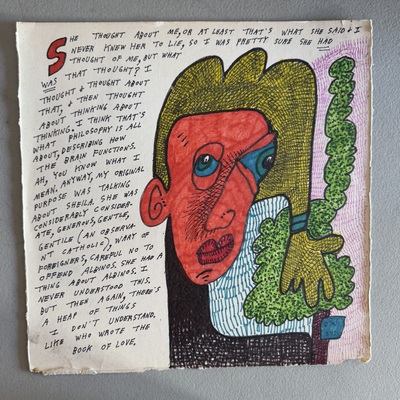 SHE THOUGHT ABOUT ME, OR AT LEAST THAT'S WHAT SHE SAID & I
NEVER KNEW HER TO LIE, SO I WAS PRETTY SURE SHE HAD
THOUGHT OF ME, BUT WHAT
WAS THAT THOUGHT? I
THOUGHT & THOUGHT ABOUT
THAT, & THEN THOUGHT
ABOUT THINKING ABOUT
THINKING. I THINK THAT'S
WHAT PHILOSOPHY IS ALL
ABOUT, DESCRIBING HOW
THE BRAIN FUNCTIONS.
AH, YOU KNOW WHAT I
MEAN. ANYWAY, MY ORIGINAL
PURPOSE WAS TALKING
ABOUT SHEILA. SHE WAS
CONSIDERABLY CONSIDER-
ATE, GENEROUS, GENTLE,
GENTILE (AN OBSERVA-
NT CATHOLIC), WARY OF
FOREIGNERS, CAREFUL NO TO
OFFEND ALBINOS. SHE HAD A
THING ABOUT ALBINOS. I
NEVER UNDERSTOOD THIS.
BUT THEN AGAIN, THERE'S
A HEAP OF THINGS
I DON'T UNDERSTAND.
LIKE WHO WROTE THE
BOOK OF LOVE.